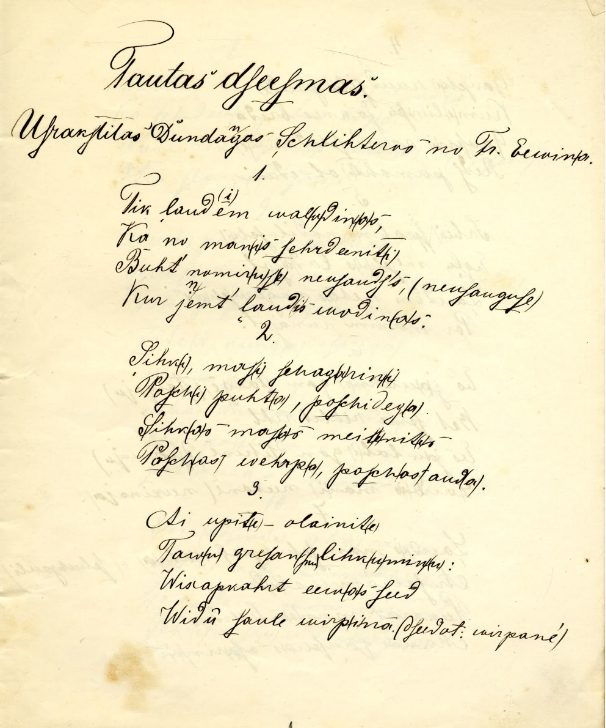 Tautas dſeeſmas.
Uſranſtitas Dundagas Schlihteros no Fr. Eewina.
1.
Tik laud(i)em wal(o)din(a)s,
Ka no man(i)s ſehrdeenit(i)
Buht' nomir(u)ſ(e) neusaudſ's, (neusauguſe)
Kur jemt' laudis wodin(a)s.
2.
Sihk(i), maſ(i) ſchagarin(i)
Poſch(i) puht(a), poſchideg(a).
Sihk(a)s maſ(a)s meitinit(a)s
Poſch(as) wehrp(a), poſch(as) aud(a).
3.
Ai upit(e) – olainit(e)
Taw(u) greſan(ſu) lihk(u)min(u):
Wisapkahrt eew(a)s ſeed
Widū ſaule wirpina. (dſeedot: wirpané)